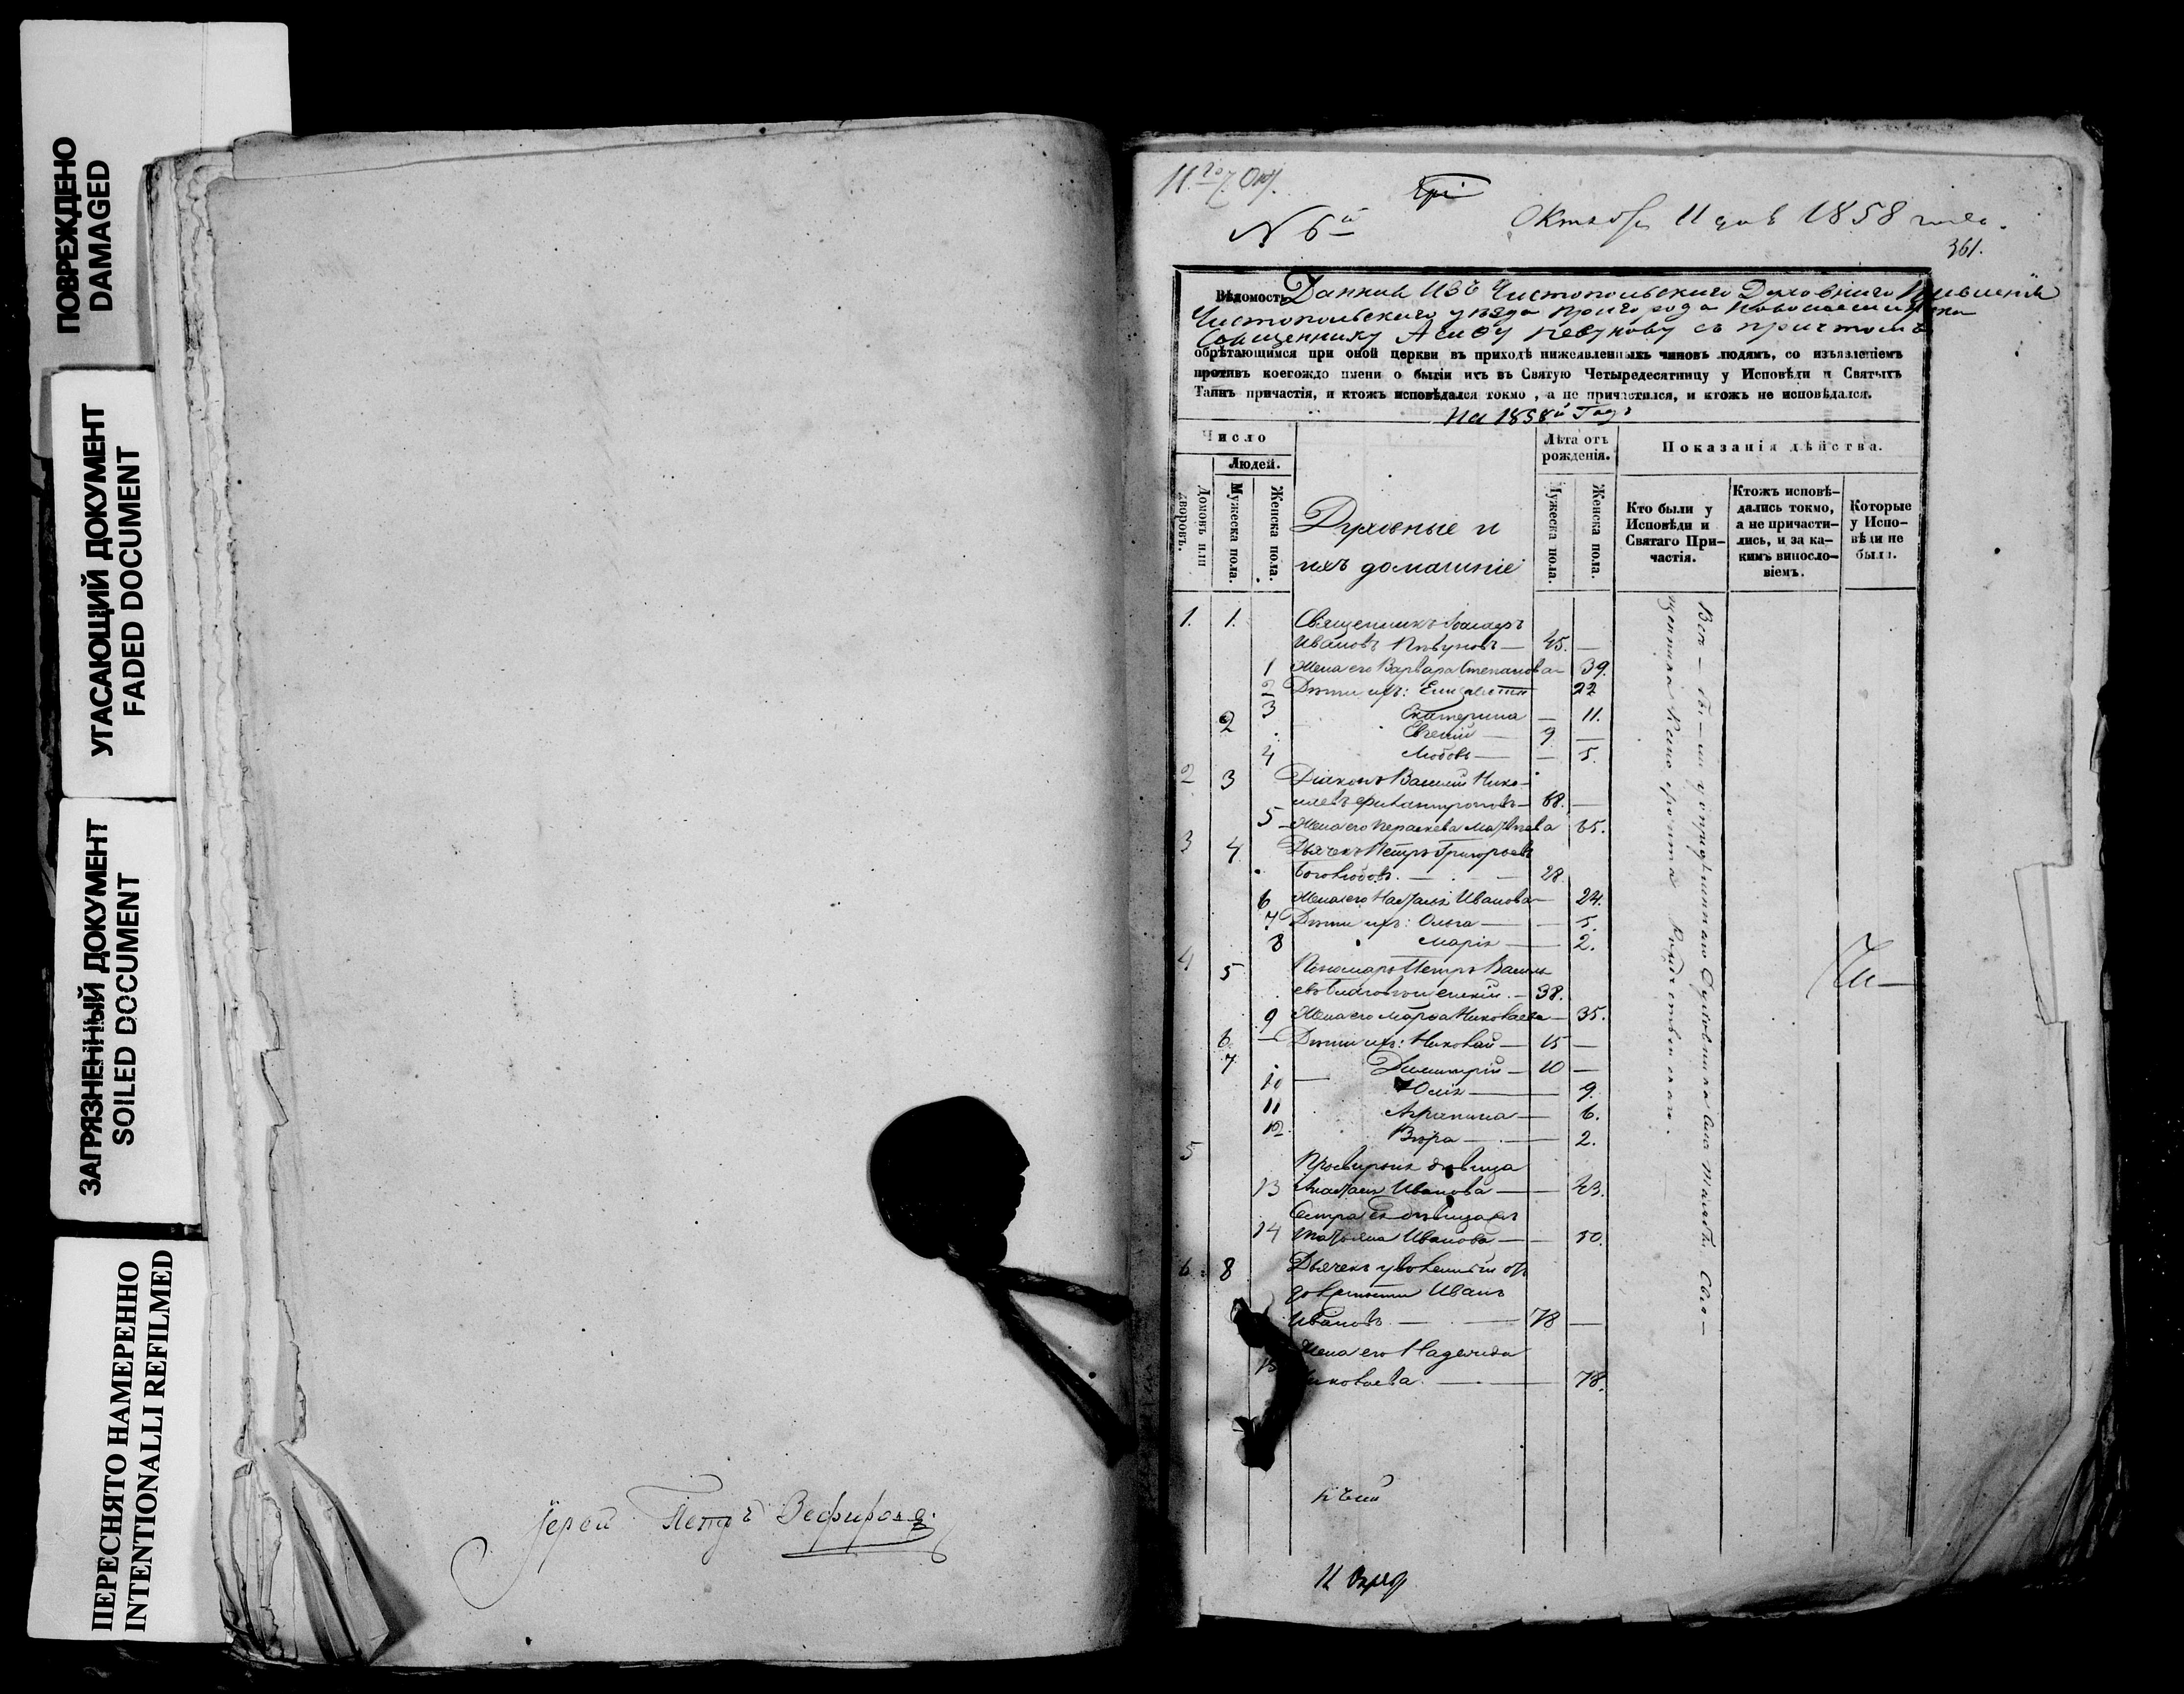 ПОВРЕЖДЕНО
DAMAGED
УГАСАЮЩИЙ ДОКУМЕНТ
FADED DOCUMENT
ЗАГРЯЗНЕННЫЙ ДОКУМЕНТ
SOILED DOCUMENT
ПЕРЕСНЯТО НАМЕРЕННО
INTENTIONALLI REFILMED
Іерей Петръ
11го Окт.
N 6й
Октября 11 дня 1858 года.
361.
Вѣдомость Данная изъ Чистопольскаго Духовнаго Правленія
Чистопольскаго уѣзда пригорода Новошешминска
Священнику Певунову съ причтомъ
обрѣтающимся при оной церкви въ приходѣ нижеявленныхъ чиновъ людямъ, со изъявленіемъ
противъ коегождо имени о бытіи ихъ въ Святую Четыредесятницу у Исповѣди и Святыхъ
Таинъ причастія, и ктожъ исповѣдался токмо, а не причастился, и ктожъ не исповѣдался.
На 1858й Годъ
Число
Людей.
Домовъ или дворовъ.
Мужеска пола.
Женска пола.
Духовные и
ихъ домашніе
Лѣта отъ рожденія.
Мужеска пола.
Женска пола.
Показанія дѣйства.
Кто были у Исповѣди и Святаго При-частія.
Ктожъ исповѣ-дались токмо, а не причасти-лись, и за ка-кимъ винословіемъ.
Которые у Испо-вѣди не были.
1. 1. Священникъ
Ивановъ Пѣвуновъ — 45. —
1 Жена его Варвара Степанова — 39.
2 Дѣти ихъ: Елизавета 22
3 Екатерина — 11.
2 Евгеній — 9 —
4 Любовь — — 5.
2 3 Діаконъ Василій Нико-
лаевъ — 68. —
5 Жена его Параскева Матвѣева 65.
3 4 Дьячекъ Петръ Григорьевъ
Боголюбовъ. — — 28
6 Жена его Наталья Иванова — 24.
7 Дѣти ихъ: Ольга — — 5.
8 Марія — — 2.
4 5 Пономарь Петръ Василь-
евъ Благовѣщенскій. — 38.
9 Жена его Марѳа Николаева — 35.
6 — Дѣти ихъ: Николай — 15 —
7 Димитрій — 10 —
10 — Юлія — 9.
11 Агрипина — 6.
12 Вѣра — — 2.
5 Просвирня дѣвица
13 Иванова — — 43.
Сестра ея дѣвица
14 Татьяна Иванова — — 50.
6 8 Дьячекъ уволенный отъ
должности Иванъ
Ивановъ — — 78 —
15 Жена его Надежда
иколаева — — 78.